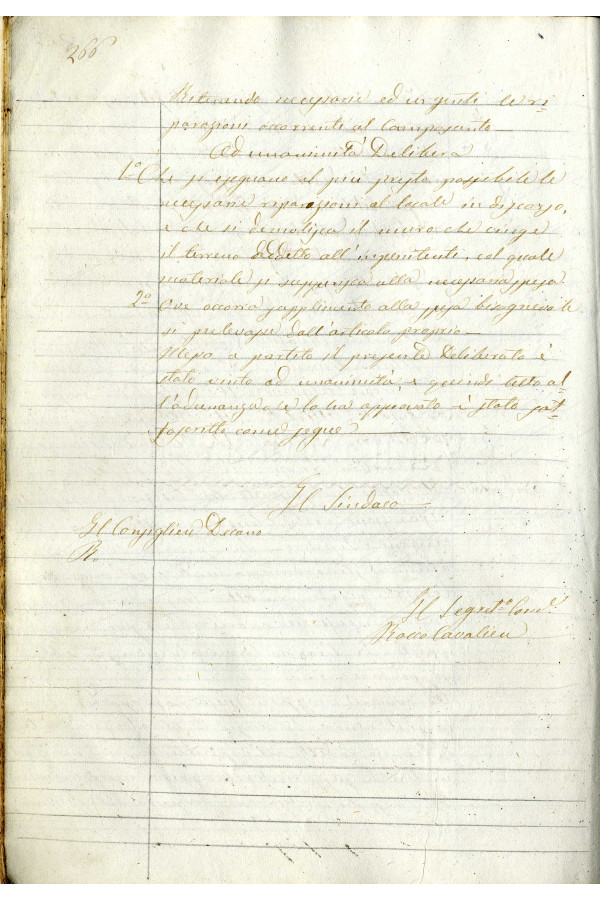 266
Ritenendo necessarie ed urgenti le ri-
parazioni occorrenti al Camposanto
Ad unanimità Delibera
1º Che si eseguano al più presto possibile le
necessarie riparazioni al locale in discorso,
e che si demolisca il muro che cinge
il terreno addetto all'inpenitenti, col quale
materiale si supplisca alla necessaria spesa.
2º Ove occorra supplimento alla spesa bisognevole
si prelevasse dall'articolo proprio
Messo a partito il presente Deliberato è
stato vinto ad unanimità, e quindi letto al-
l'adunanza che lo ha approvato è stato sot-
toscritto come segue
Il Sindaco
Il Consigliere Decano
R.
Il Segretº Comle
Rocco Cavalieri